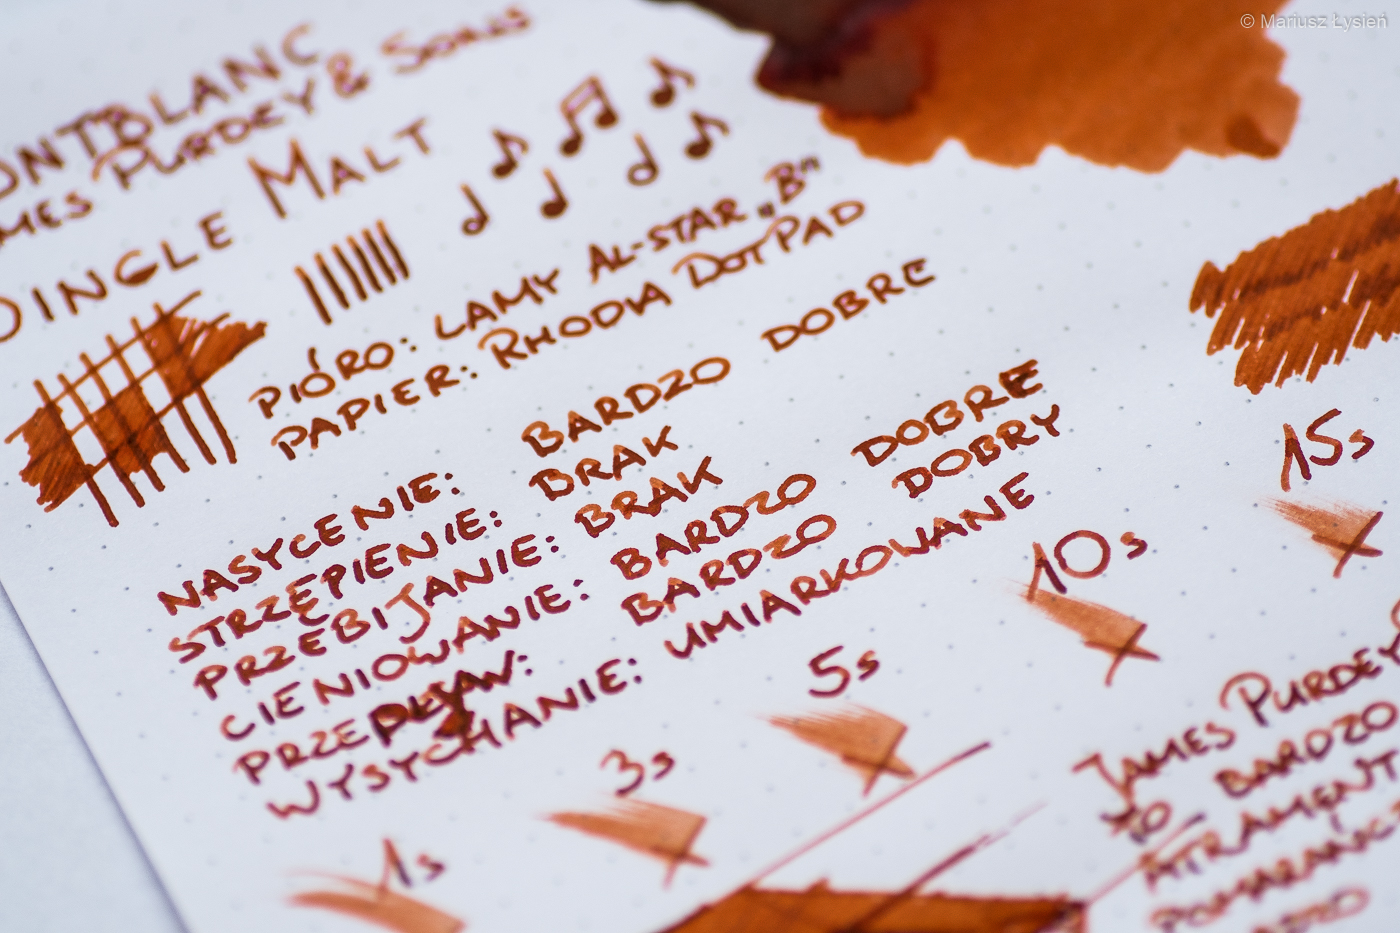 © Mariusz Łysień
ONTBLANC
MES PURDEY & SONS
SINGLE MALT
PIÓRO: LAMY AL-STAR „B"
PAPIER: RHODIA DOTPAD
NASYCENIE: BARDZO DOBRE
STRZĘPIENIE: BRAK
PRZEBIJANIE: BRAK
CIENIOWANIE: BARDZO DOBRE
PRZEPŁYW: BARDZO DOBRY
WYSYCHANIE: UMIARKOWANE
1s 3s 5s 10s 15s
JAMES PURDEY
TO BARDZO
ATRAMENT
POMARAŃC